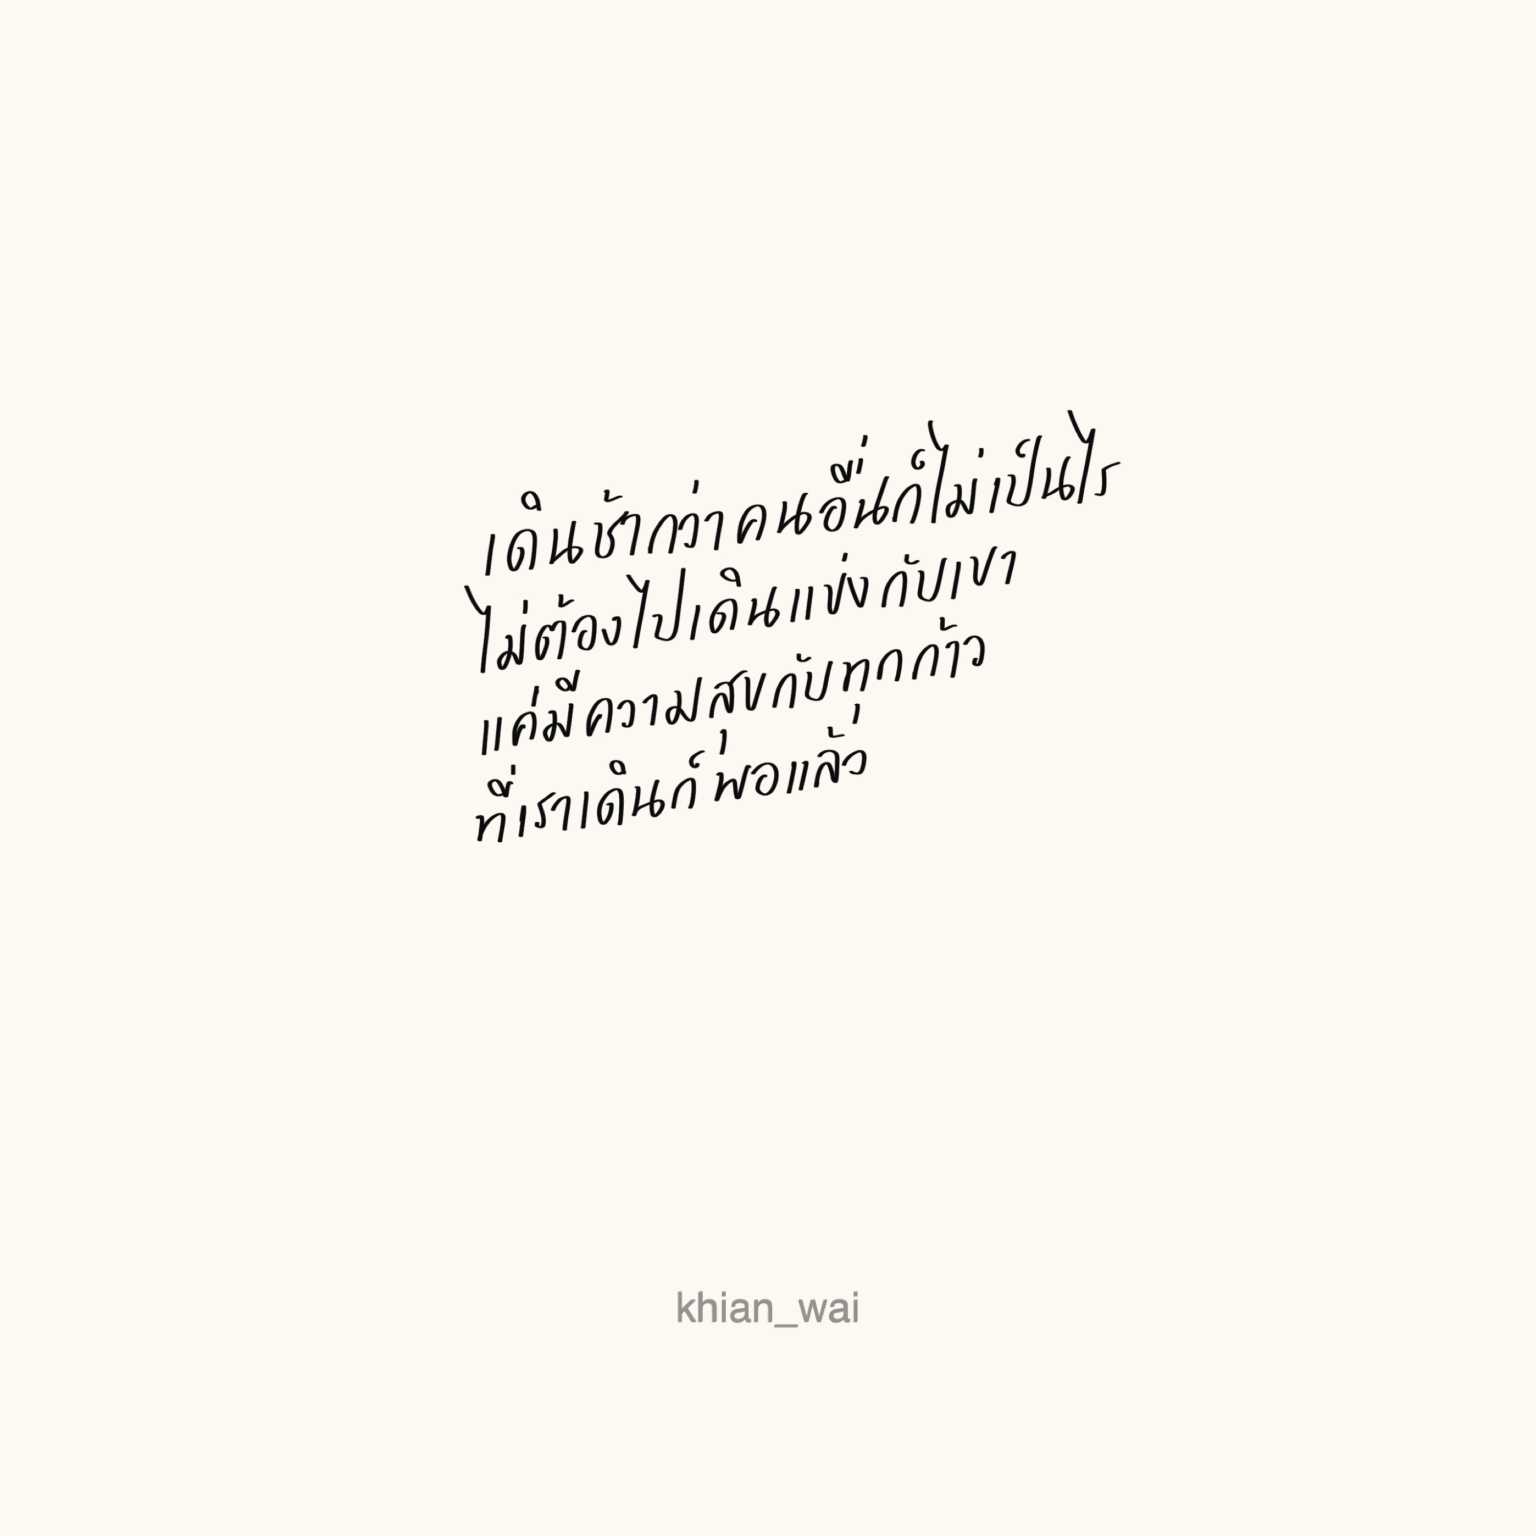 เดินช้ากว่าคนอื่นก็ไม่เป็นไร
ไม่ต้องไปเดินแข่งกับเขา
แค่มีความสุขกับทุกก้าว
ที่เราเดินก็พอแล้ว
khian_wai